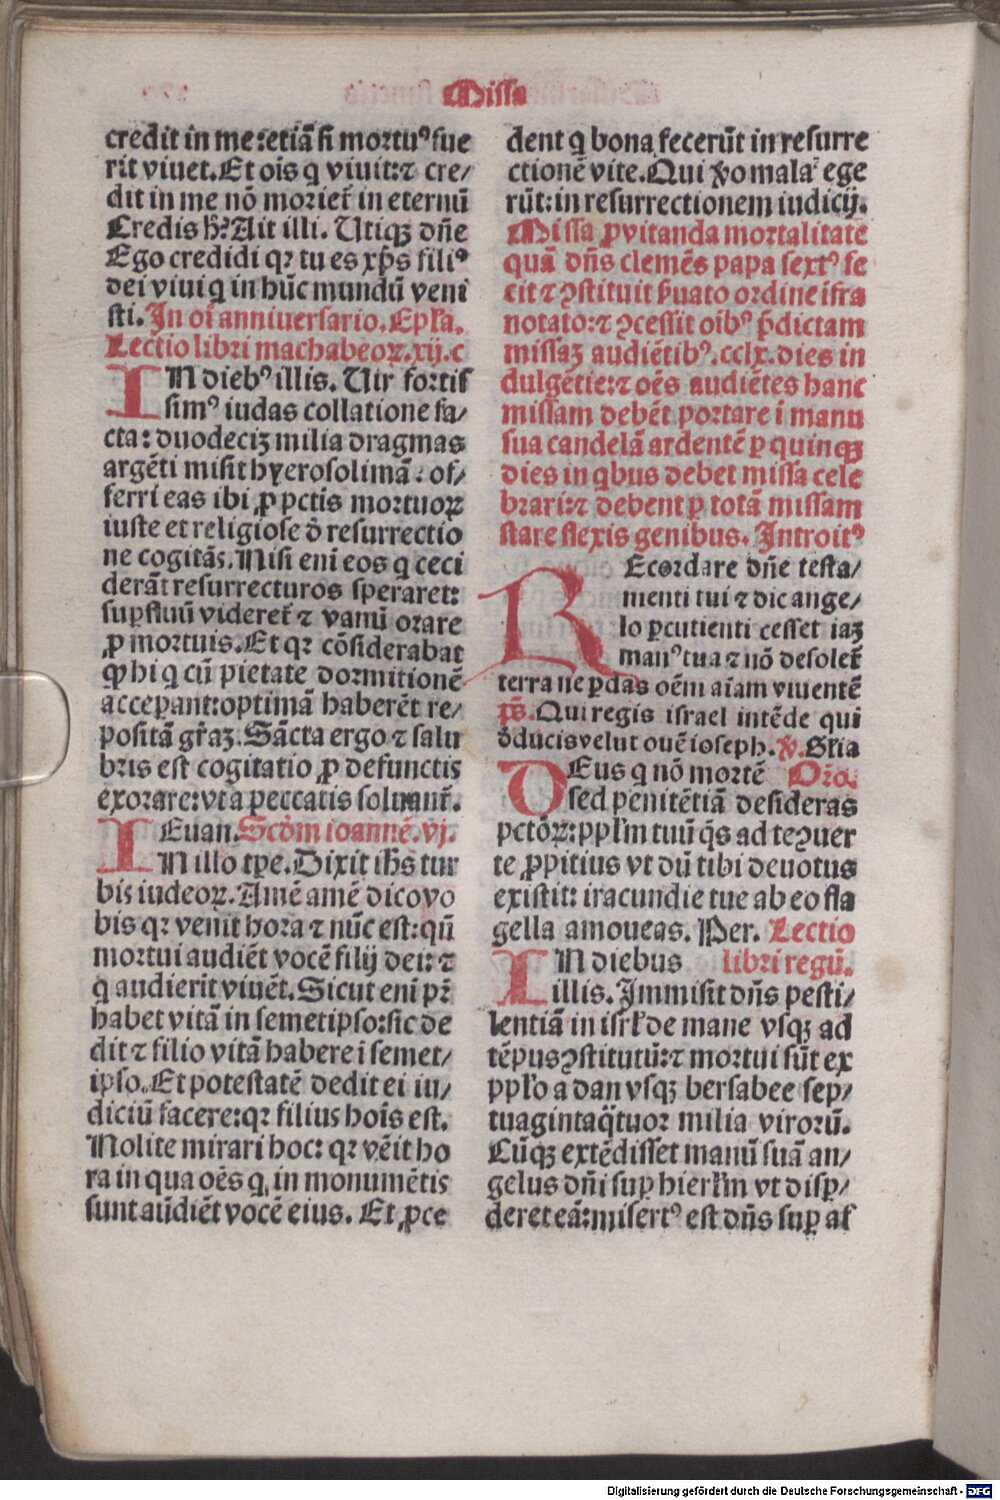 Missa
credit in me: etiā si mortuꝰ fue
rit viuet. Et oīs q viuit: ⁊ cre/
dit in me nō morieť in eternū
Credis h̊? Ait illi. Utiqꝫ dn̄e
Ego credidi qꝛ tu es xp̄s filiꝰ
dei viui q in hūc mundū veni
sti. In oī anniuersario. Ep̄ła.
Lectio libri machabeoꝝ. xij. c
IN diebꝰ illis. Uir fortis
simꝰ iudas collatione fa/
cta: duodeciꝫ milia dragmas
argēti misit hyerosolimā: of/
ferri eas ibi ꝓ pctis mortuoꝝ
iuste et religiose d̄ resurrectio
ne cogitās. Nisi enī eos q ceci
derāt resurrecturos speraret:
suꝑfluū videreť ⁊ vanū orare
ꝓ mortuis. Et qꝛ cōsiderabat
ꝙ hi q cū pietate dormitionē
acceꝑant: optimā haberēt re/
positā gr̄aꝫ. Sācta ergo ⁊ salu
bris est cogitatio ꝓ defunctis
exorare: vt a peccatis soluanť.
Euan. Scd̄m ioannē. vj.
IN illo tꝑe. Dixit ih̄s tur
bis iudeoꝝ. Amē amē dico vo
bis qꝛ venit hora ⁊ nūc est: qn̄
mortui audiēt vocē filij dei: ⁊
q audierit viuēt. Sicut enī pr̄
habet vitā in semetipso: sic de
dit ⁊ filio vitā habere ī semet/
ipso. Et potestatē dedit ei iu/
diciū facere: qꝛ filius hoīs est.
Nolite mirari hoc: qꝛ vēit ho
ra in qua oēs q in monumētis
sunt audiēt vocē eius. Et ꝓce
dent q bona fecerūt in resurre
ctionē vite. Qui ꝟo mala egе
rūt: in resurrectionem iudicij.
Missa ꝓ vitanda mortalitatē
quā dn̄s clemēs papa sextꝰ fe
cit ⁊ ꝯstituit p̄uato ordine īfra
notato: ⁊ ꝯcessit oībꝰ p̄dictam
missaꝫ audiētibꝰ. cclx. dies in
dulgētie: ⁊ oēs audiētes hanc
missam debēt portare ī manu
sua candelā ardentē ꝑ quinqꝫ
dies in qbus debet missa cele
brari: ⁊ debent ꝑ totā missam
stare flexis genibus. Introitꝰ
REcordare dn̄e testa/
menti tui ⁊ dic ange/
lo ꝑcutienti cesset iaꝫ
manꝰ tua ⁊ nō desoleť
terra ne ꝑdas oēm aīam viuentē
p̄s. Qui regis israel intēde qui
d̄ducis velut ouē ioseph. ꝟ. Głia
DEus q nō mortē Or̄o.
sed penitētiā desideras
pctōꝝ: ppłm tuū q̄s ad te ꝯuer
te ꝓpitius vt dū tibi deuotus
existit: iracundie tue ab eo fla
gella amoueas. Per. Lectio
IN diebus libri regū.
illis. Immisit dn̄s pesti/
lentiā in isrł de mane vsqꝫ ad
tēpus ꝯstitutū: ⁊ mortui sūt ex
ppło a dan vsqꝫ bersabee sep/
tuaginta q̄tuor milia virorū.
Cūqꝫ extēdisset manū suā an/
gelus dn̄i suꝑ hierłm vt disꝑ/
deret eā: misertꝰ est dn̄s suꝑ af
Digitalisierung gefördert durch die Deutsche Forschungsgemeinschaft - DFG